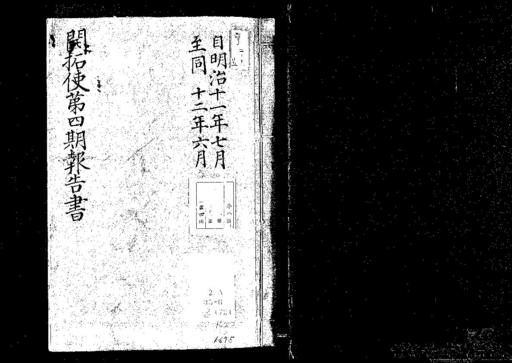 自明治十一年七月
至同 十二年六月
開拓使第四期報告書
2A
1695